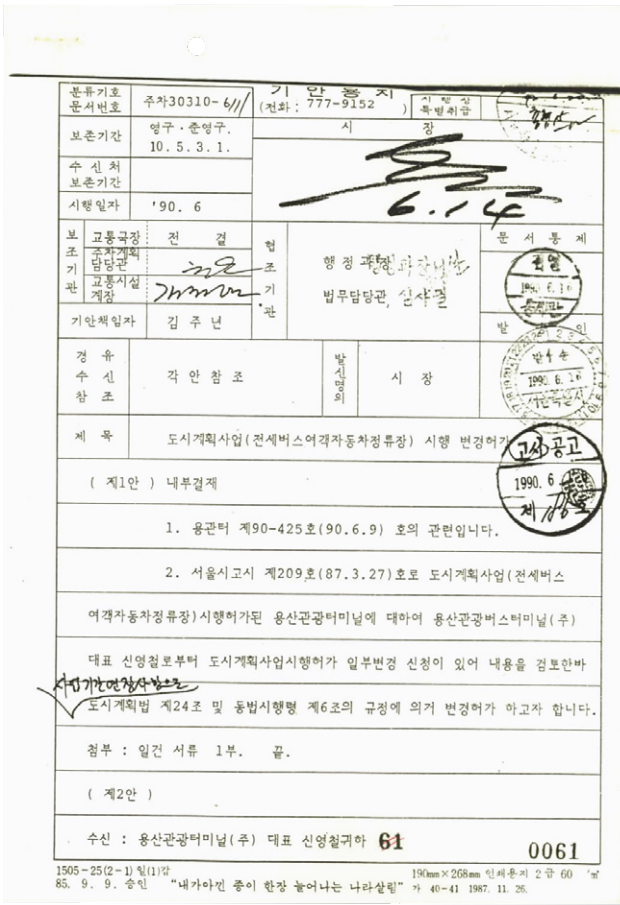 분류기호
문서번호
주차30310-611
기안용지
(전화 : 777-9152 )
시행상
특별취급
보존기간
영구·준영구.
10. 5. 3. 1.
시 장
수신처
보존기간
시행일자
'90. 6
6.14
보조기관
교통국장
전 결
주차계획
담당관
교통시설
계장
협조기관
행정과장
법무담당관, 심사필
문서통제
1990. 6. 16
기안책임자
김 주 년
발 인
경 유
수 신
참 조
각 안 참 조
발신명의
시 장
발 송
1990. 6. 16
서울특별시
제 목
도시계획사업(전세버스여객자동차정류장) 시행 변경허가
고시공고
1990. 6
제 호
( 제1안 ) 내부결재
1. 용관터 제90-425호(90.6.9) 호의 관련입니다.
2. 서울시고시 제209호(87.3.27)호로 도시계획사업(전세버스
여객자동차정류장)시행허가된 용산관광터미널에 대하여 용산관광버스터미널(주)
대표 신영철로부터 도시계획사업시행허가 일부변경 신청이 있어 내용을 검토한바
사업기간연장사항으로
도시계획법 제24조 및 동법시행령 제6조의 규정에 의거 변경허가 하고자 합니다.
첨부 : 일건 서류 1부. 끝.
( 제2안 )
수신 : 용산관광터미널(주) 대표 신영철귀하 61
0061
1505-25(2-1) 일(1)갑
190mm×268mm 인쇄용지 2급 60 /㎡
85. 9. 9. 승인 "내가아낀 종이 한장 늘어나는 나라살림" 가 40-41 1987. 11. 26.